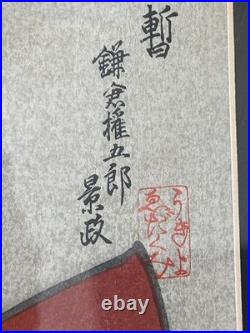 暫
鎌倉権五郎
景政